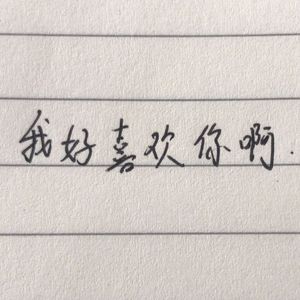 我好喜欢你啊.